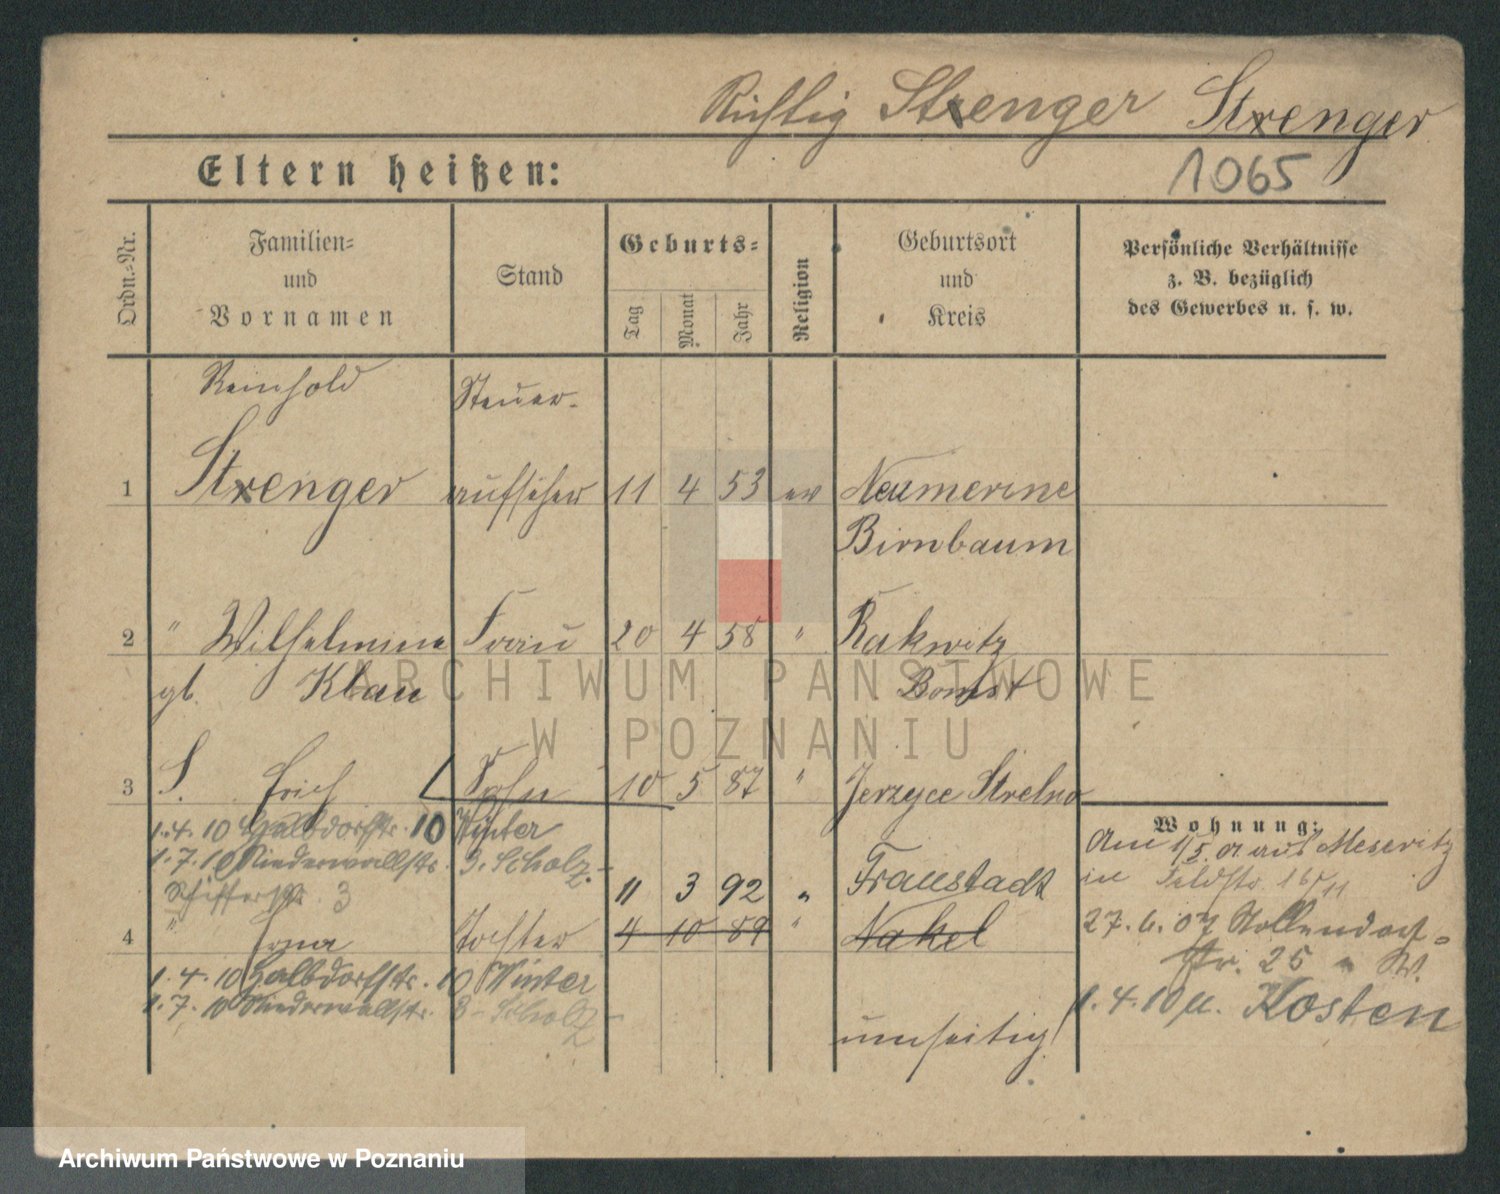 Richtig Strenger Strenger
1065
Eltern heißen:
Ordn.-Nr.
Familien-
und
Vornamen
Stand
Geburts-
Tag
Monat
Jahr
Religion
Geburtsort
und
Kreis
Persönliche Verhältnisse
z. B. bezüglich
des Gewerbes u. s. w.
Reinhold Steuer-
1 Strenger aufseher 11 4 53 ev Neumerine
Birnbaum
2 " Wilhelmine Frau 20 4 58 " Rakwitz
gb. Klau Bomst
3 S. Erich Sohn 10 5 87 " Jerzyce Strelno
1.4.10 Halbdorfstr. 10 Winter
1.7.10 Niederwallstr. 3. Scholz.-
Schifferstr. 3
11 3 92 " Fraustadt
4 " Erna Tochter 4 10 89 " Nakel
1.4.10 Halbdorfstr. 10 Winter
1.7.10 Niederwallstr. 3 - Scholz -
umseitig!
Wohnung:
Am 1/5. 01 aus Meseritz
in Feldstr. 16/11
27.6.07 Nollendorf-
str. 25 W.
1.4.10 n. Kosten
ARCHIWUM PAŃSTWOWE
W POZNANIU
Archiwum Państwowe w Poznaniu